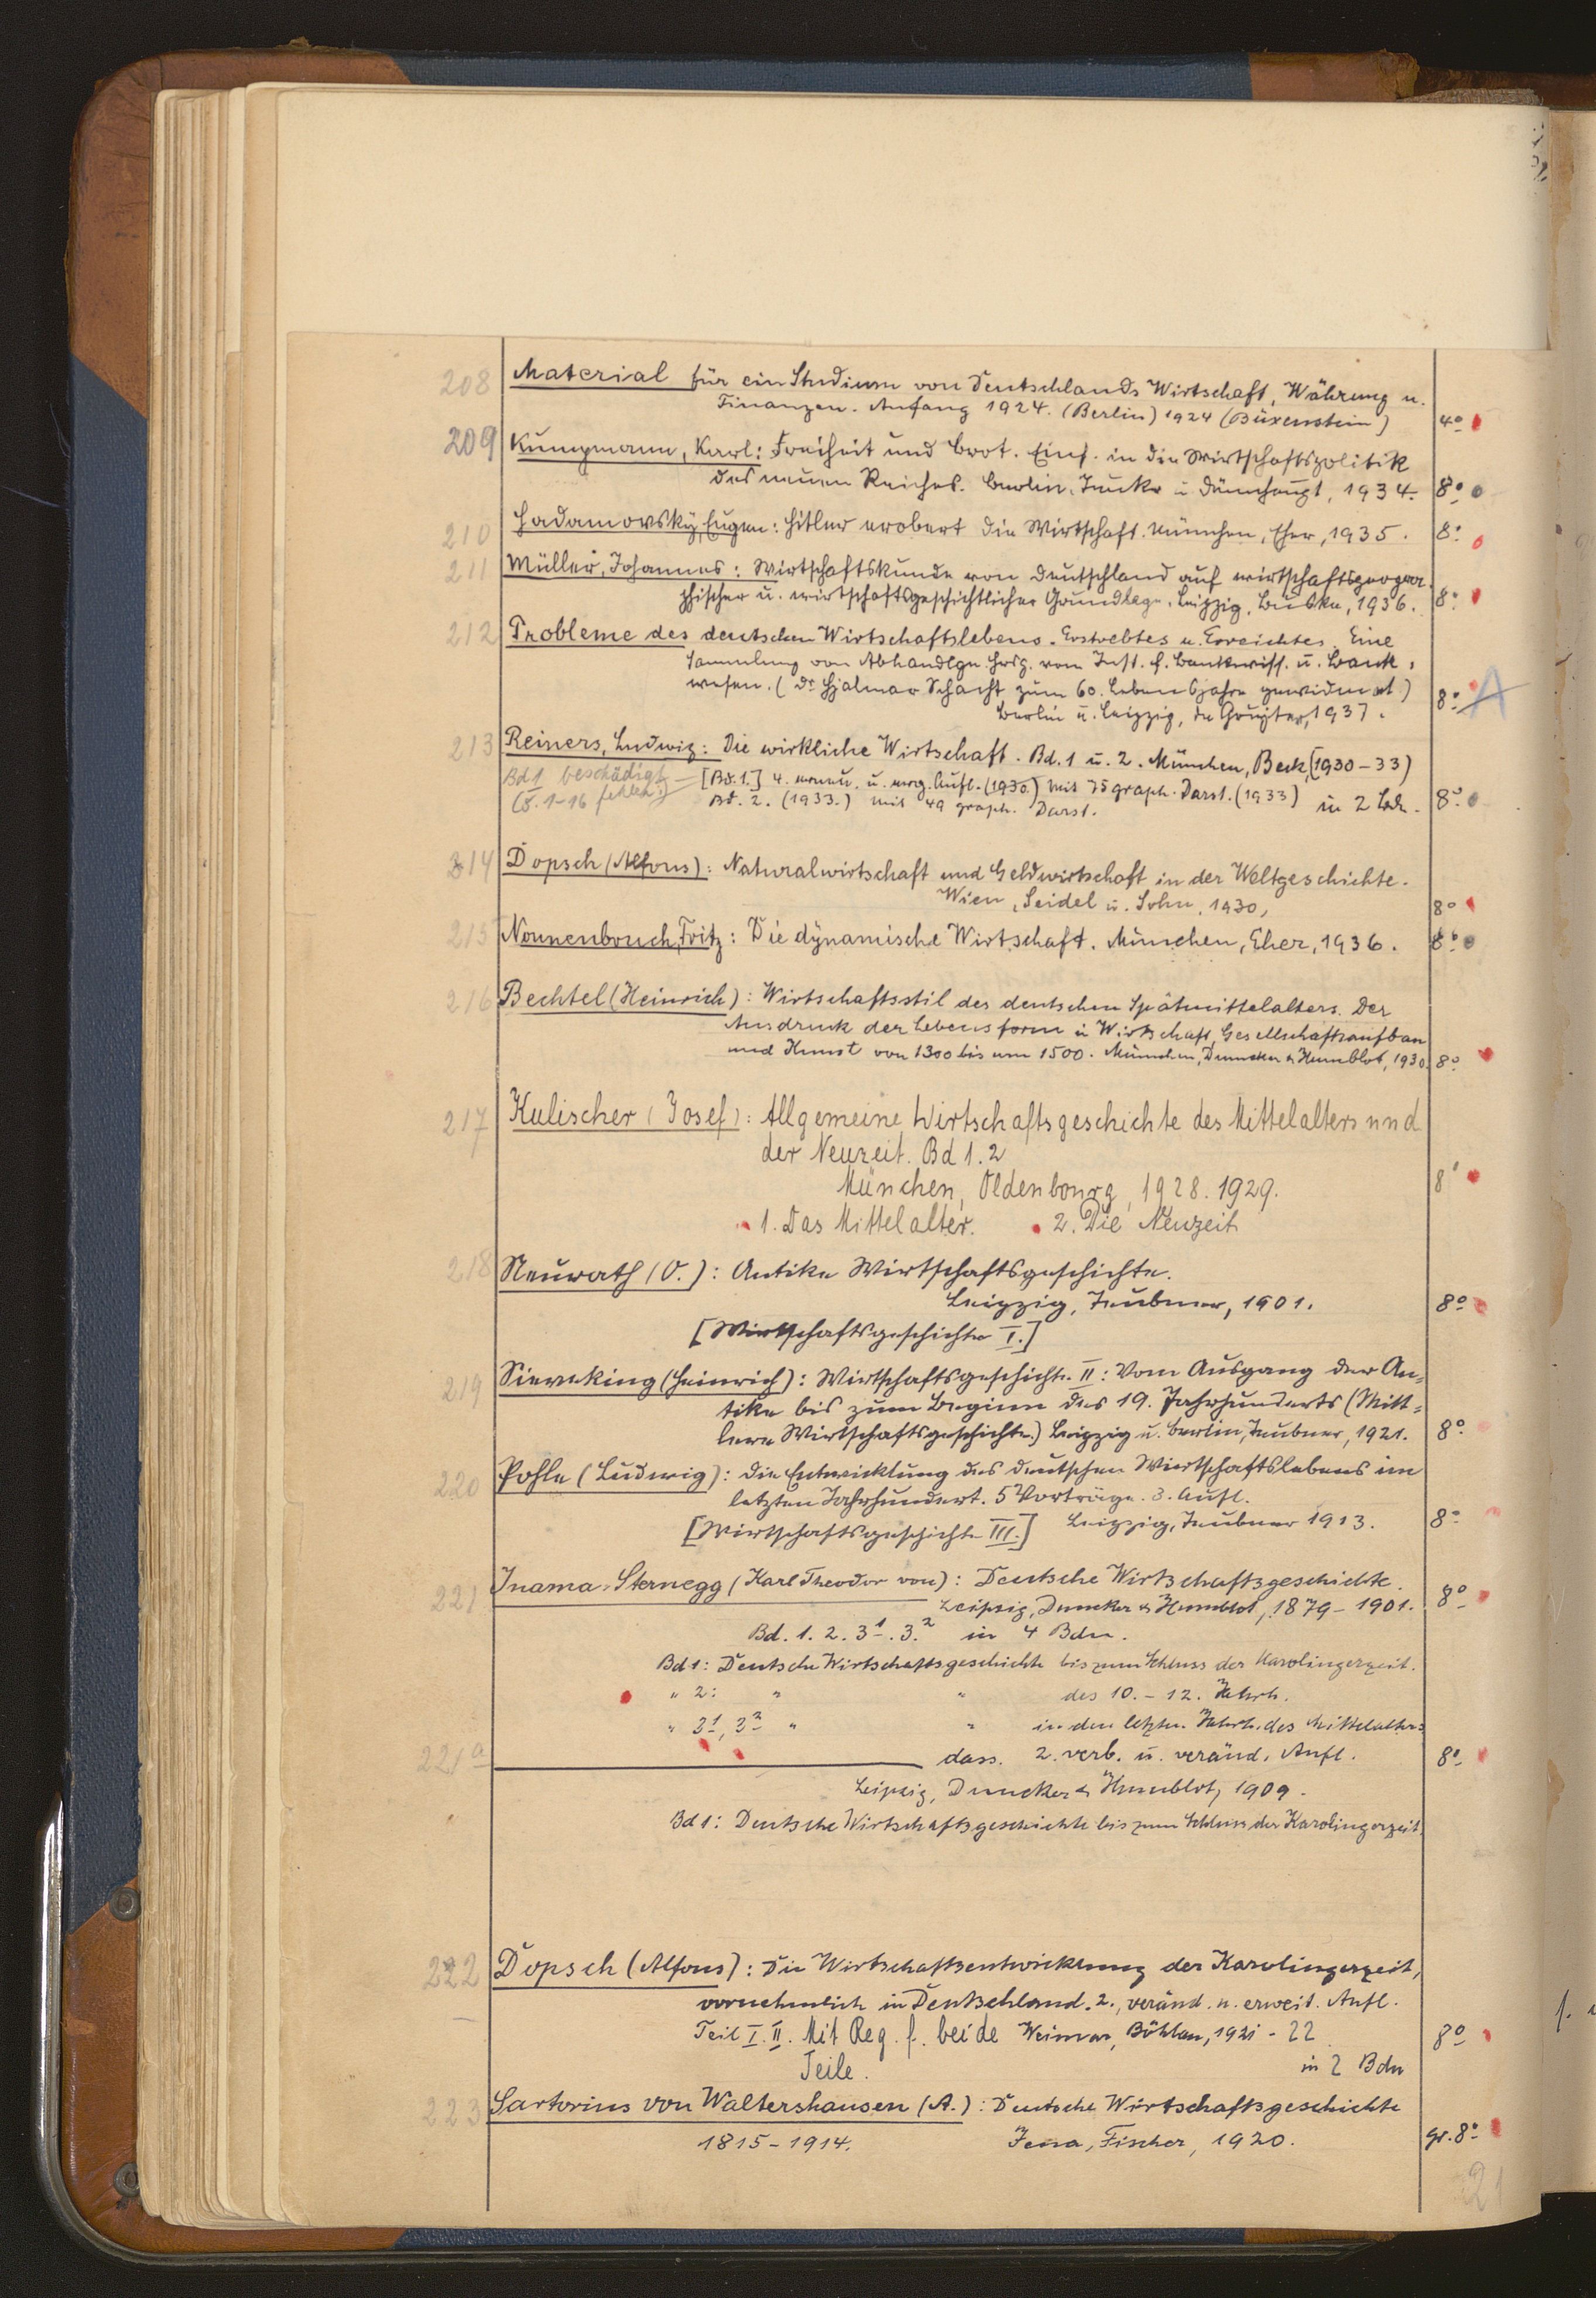 208 Material für ein Studium von Deutschlands Wirtschaft, Währung u.
Finanzen. Anfang 1924. (Berlin) 1924 (Büxenstein) 4º
209 Kumpmann, Karl: Freiheit und Brot. Einf. in die Wirtschaftspolitik
des neuen Reiches. Berlin, Junker u Dünnhaupt, 1934. 8º
210 Hadamovsky, Eugen: Hitler erobert die Wirtschaft. München, Eher, 1935. 8º
211 Müller, Johannes: Wirtschaftskunde von Deutschland auf wirtschaftsgeogra-
phischer u. wirtschaftsgeschichtlicher Grundlage. Leipzig, Buske, 1936. 8º
212 Probleme des deutschen Wirtschaftslebens. Erstrebtes u. Erreichtes. Eine
Sammlung von Abhandlgn hrsg. vom Inst. f. Bankwiss. u. Bank-
wesen. (Dr Hjalmar Schacht zum 60. Lebensjahre gewidmet) 8º A
Berlin u. Leipzig, de Gruyter, 1937.
213 Reiners, Ludwig: Die wirkliche Wirtschaft. Bd. 1 u. 2. München, Beck, (1930-33)
Bd 1 beschädigt — [Bd. 1.] 4. erneu. u. erg. Aufl. (1930.) mit 75 graph. Darst. (1933)
(S. 1-16 fehlen) Bd. 2. (1933.) mit 49 graph. Darst. in 2 Bdn. 8º
214 Dopsch (Alfons): Naturalwirtschaft und Geldwirtschaft in der Weltgeschichte.
Wien, Seidel u. Sohn, 1930, 8º
215 Nonnenbruch, Fritz: Die dynamische Wirtschaft. München, Eher, 1936. 8º
216 Bechtel (Heinrich): Wirtschaftsstil des deutschen Spätmittelalters. Der
Ausdruck der Lebensform in Wirtschaft, Gesellschaftsaufbau
und Kunst von 1300 bis um 1500. München, Duncker & Humblot, 1930. 8º
217 Kulischer (Josef): Allgemeine Wirtschaftsgeschichte des Mittelalters und
der Neuzeit. Bd 1. 2
München, Oldenbourg, 1928. 1929. 8º
1. Das Mittelalter. 2. Die Neuzeit
218 Neurath (O.): Antike Wirtschaftsgeschichte.
Leipzig, Teubner, 1901. 8º
[Wirtschaftsgeschichte I.]
219 Sieveking (Heinrich): Wirtschaftsgeschichte II: Vom Ausgang der An=
tike bis zum Beginn des 19. Jahrhunderts (Mitt=
lere Wirtschaftsgeschichte.) Leipzig u. Berlin, Teubner, 1921. 8º
220 Pohle (Ludwig): Die Entwicklung des deutschen Wirtschaftslebens im
letzten Jahrhundert. 5 Vorträge. 3. Aufl.
[Wirtschaftsgeschichte III.] Leipzig, Teubner 1913. 8º
221 Inama-Sternegg (Karl Theodor von): Deutsche Wirtschaftsgeschichte.
Leipzig, Duncker & Humblot, 1879-1901. 8º
Bd. 1. 2. 3¹. 3.² in 4 Bdn.
Bd 1: Deutsche Wirtschaftsgeschichte bis zum Schluss der Karolingerzeit.
" 2: " " des 10. - 12. Jahrh.
" 3¹, 3² " " in den letzten Jahrh. des Mittelalters
221a dass. 2. verb. u. veränd. Aufl. 8º
Leipzig, Duncker & Humblot, 1909.
Bd 1: Deutsche Wirtschaftsgeschichte bis zum Schluss der Karolingerzeit.
222 Dopsch (Alfons): Die Wirtschaftsentwicklung der Karolingerzeit,
vornehmlich in Deutschland. 2., veränd. u. erweit. Aufl.
Teil I. II. Mit Reg. f. beide Weimar, Böhlau, 1921 - 22 8º
Teile. in 2 Bdn
223 Sartorius von Waltershausen (A.): Deutsche Wirtschaftsgeschichte
1815-1914. Jena, Fischer, 1920. gr. 8º
21